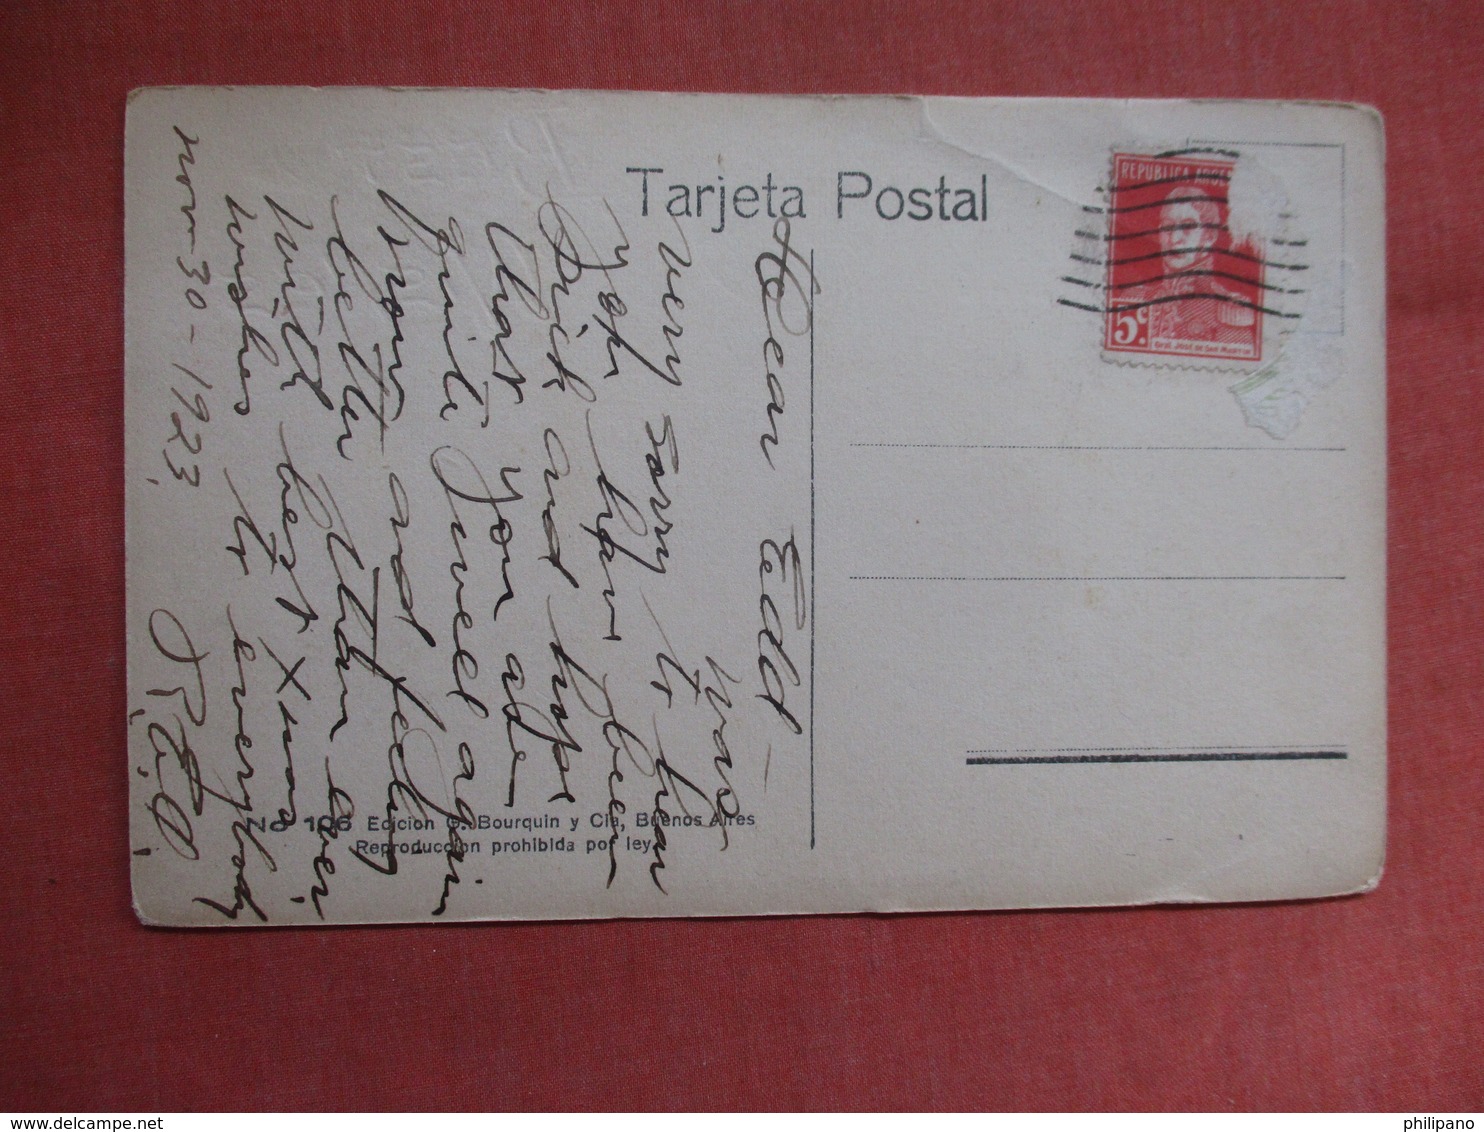 Tarjeta Postal
REPUBLICA ARGE
5c.
Gral. JOSE DE SAN MARTIN
Dear Edd -
was
very sorry to hear
you have been
sick and hope
that you are
quite well again
now and feeling
better than ever
with best Xmas
wishes to everybody
Nov-30-1923
No 106 Edicion G. Bourquin y Cia, Buenos Aires
Reproduccion prohibida por ley
delcampe.net
philipano